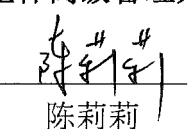 陈莉莉
陈莉莉